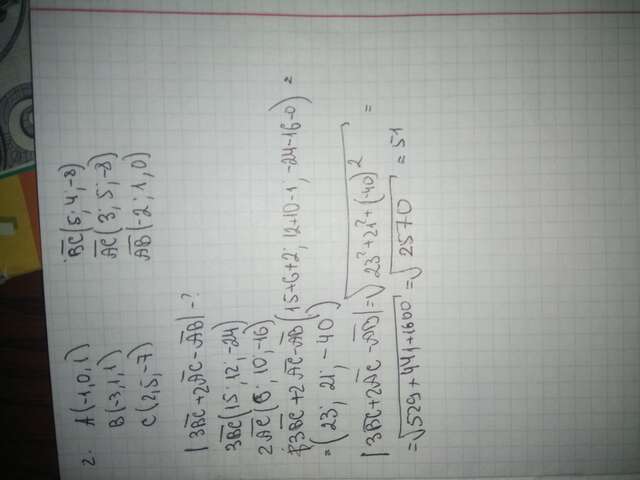 2. A(-1,0,1) BC(5; 4; -8)
B(-3,1,1) AC(3; 5; -8)
C(2,5,-7) AB(-2; 1, 0)
|3BC+2AC-AB|-?
3BC(15; 12; -24)
2AC(6; 10; -16)
3BC+2AC-AB(15+6+2; 12+10-1; -24-16-0) =
= (23; 21; -40)
|3BC+2AC-AB|=√23²+21²+(-40)² =
=√529+441+1600 =√2570 =51